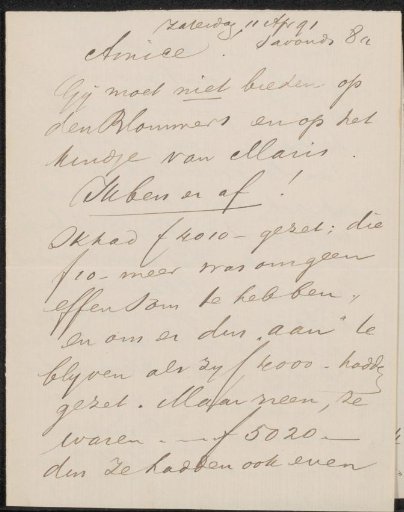 Zaterdag, 11 Apr 91
Amice. Savonds 8 u
Gij moet niet bieden op
den Blommers en op het
kindje van Maris.
Ik ben er af!
Ik had f 4010 - gezet; die
f 10 - meer was om geen
effen som te hebben,
en om er dus "aan" te
blyven als zy f 4000 - hadden
gezet. Maar neen, ze
waren - - - f 5020 -
dus ze hadden ook even